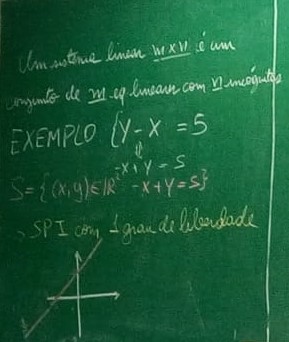 Um sistema linear m×n é um
conjunto de m eq lineares com n incógnitas
EXEMPLO { Y - X = 5
⇕
-x + y = 5
S = {(x,y) ∈ ℝ² -x+y=5}
SPI com 1 grau de liberdade